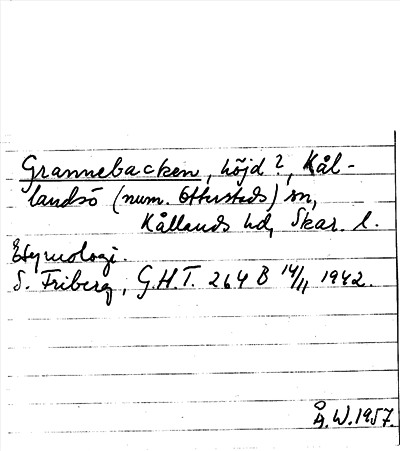 Grannebacken, höjd?, Kål-
landsö (num. Otterstads) sn,
Kållands hd, Skar. l.
Etymologi.
S. Friberg, G.H.T. 264 B 14/11 1942.
Å.W.1957.